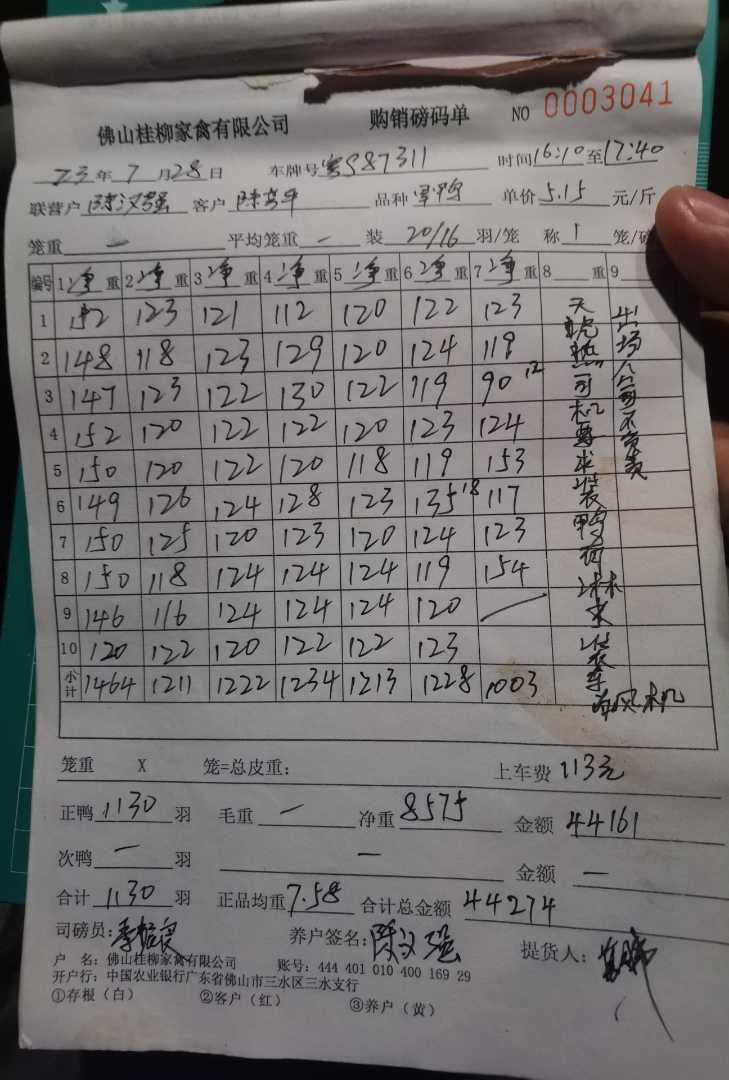 佛山桂柳家禽有限公司 购销磅码单 NO 0003041
23年7月28日 车牌号粤S87311 时间16:10至17:40
联营户 陈汉强 客户 陈 品种 鸭 单价 5.15 元/斤
笼重 — 平均笼重 — 装 20/16 羽/笼 称 1 笼/磅
编号 1净重 2净重 3净重 4净重 5净重 6净重 7净重 8 重 9
1 152 123 121 112 120 122 123
2 148 118 123 129 120 124 119
3 147 123 122 130 122 119 90 12
4 152 120 122 122 120 123 124
5 150 120 122 120 118 119 153
6 149 126 124 128 123 135 18 117
7 150 125 120 123 120 124 123
8 150 118 124 124 124 119 154
9 146 116 124 124 124 120 /
10 120 122 120 122 122 123
小计 1464 1211 1222 1234 1213 1228 1003
天 热 司机要求装鸭 淋水装车 风机
出场公司不负责
笼重 X 笼=总皮重: 上车费 113元
正鸭 1130 羽 毛重 — 净重 8575 金额 44161
次鸭 — 羽 — 金额 —
合计 1130 羽 正品均重 7.58 合计总金额 44274
司磅员: 李 良 养户签名: 陈汉强 提货人:
户 名: 佛山桂柳家禽有限公司 账号: 444 401 010 400 169 29
开户行: 中国农业银行广东省佛山市三水区三水支行
①存根(白) ②客户(红) ③养户(黄)